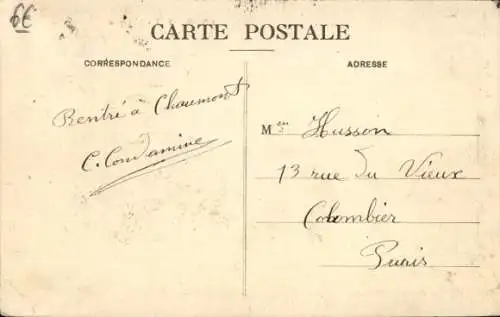 6€
CARTE POSTALE
CORRESPONDANCE
ADRESSE
Rentré à Chaumont
C. Condamine
Mon Husson
13 rue du Vieux
Colombier
Paris